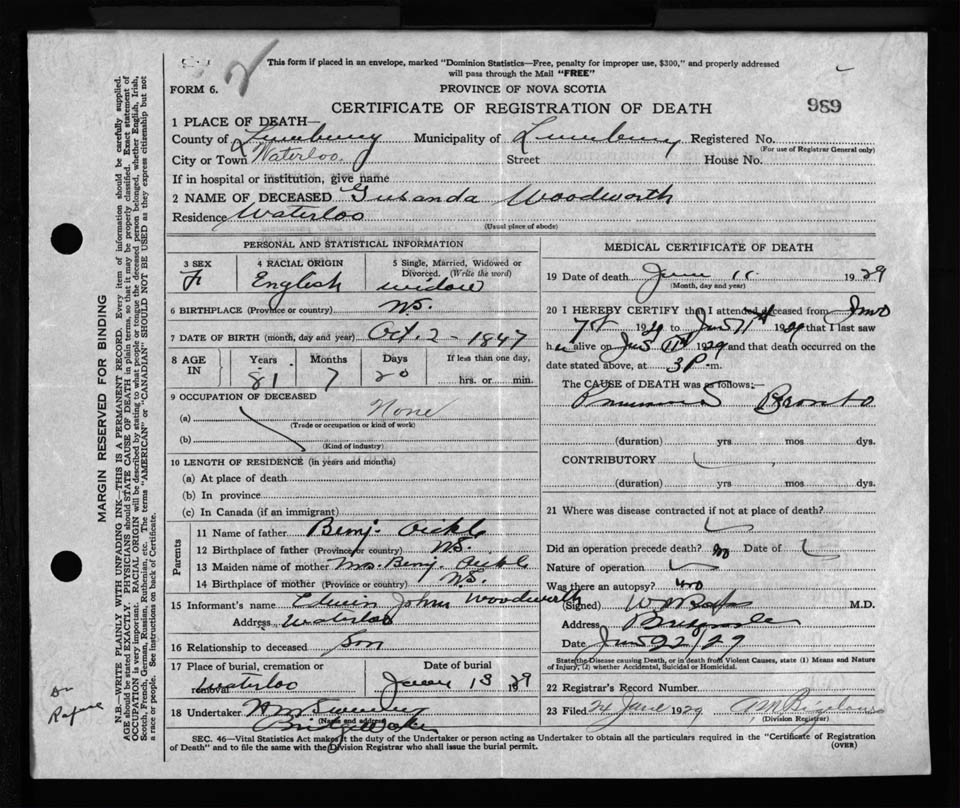 This form if placed in an envelope, marked "Dominion Statistics—Free, penalty for improper use, $300," and properly addressed
will pass through the Mail "FREE"
FORM 6.
PROVINCE OF NOVA SCOTIA
CERTIFICATE OF REGISTRATION OF DEATH
989
1 PLACE OF DEATH—
County of Lunenburg Municipality of Lunenburg Registered No.
(For use of Registrar General only)
City or Town Waterloo. Street House No.
If in hospital or institution, give name
2 NAME OF DECEASED Susanda Woodworth
Residence Waterloo
(Usual place of abode)
PERSONAL AND STATISTICAL INFORMATION
3 SEX 4 RACIAL ORIGIN 5 Single, Married, Widowed or
Divorced. (Write the word)
F English widow
6 BIRTHPLACE (Province or country) N.S.
7 DATE OF BIRTH (month, day and year) Oct. 2 - 1847
8 AGE IN Years Months Days If less than one day,
81 7 20 hrs. or min.
9 OCCUPATION OF DECEASED
(a) None
(Trade or occupation or kind of work)
(b)
(Kind of industry)
10 LENGTH OF RESIDENCE (in years and months)
(a) At place of death
(b) In province
(c) In Canada (if an immigrant)
Parents
11 Name of father Benj. Oickle
12 Birthplace of father (Province or country) N.S.
13 Maiden name of mother Mrs. Benj. Oickle
14 Birthplace of mother (Province or country) N.S.
15 Informant's name Edwin John Woodworth
Address Waterloo
16 Relationship to deceased Son
17 Place of burial, cremation or removal Date of burial
Waterloo June 13 1929
18 Undertaker
(Name and address)
Bridgewater
MEDICAL CERTIFICATE OF DEATH
19 Date of death June 11. 1929
(Month, day and year)
20 I HEREBY CERTIFY that I attended deceased from
1929 to 1929 that I last saw
her alive on 11th 1929 and that death occurred on the
date stated above, at 3 P. m.
The CAUSE of DEATH was as follows:—
Broncho
(duration) yrs mos dys.
CONTRIBUTORY
(duration) yrs mos dys.
21 Where was disease contracted if not at place of death?
Did an operation precede death? no Date of
Nature of operation
Was there an autopsy? no
(Signed) M.D.
Address
Date June 22/29
State the Disease causing Death, or in death from Violent Causes, state (1) Means and Nature
of Injury; (2) whether Accidental, Suicidal or Homicidal.
22 Registrar's Record Number
23 Filed 24 June 1929
(Division Registrar)
SEC. 46—Vital Statistics Act makes it the duty of the Undertaker or person acting as Undertaker to obtain all the particulars required in the "Certificate of Registration
of Death" and to file the same with the Division Registrar who shall issue the burial permit.
(OVER)
MARGIN RESERVED FOR BINDING
N.B.—WRITE PLAINLY WITH UNFADING INK—THIS IS A PERMANENT RECORD. Every item of information should be carefully supplied.
AGE should be stated EXACTLY. PHYSICIANS should STATE CAUSE OF DEATH in plain terms, so that it may be properly classified. Exact statement of
OCCUPATION is very important. RACIAL ORIGIN will be described by stating to what people or tongue the deceased person belonged, whether English, Irish,
Scotch, French, German, Russian, Ruthenian, etc. The terms "AMERICAN" or "CANADIAN" SHOULD NOT BE USED as they express citizenship but not
a race or people. See instructions on back of Certificate.